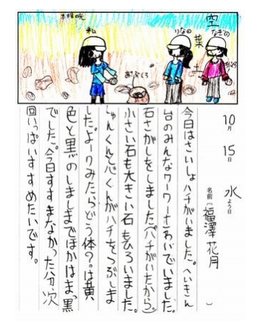 空
葉
私
10月15日水よう日
名前(福澤花月)
今日はさいしょハチがいました。へいきん
台のみんなワーワーさわいでいました。
石さがしをしました(ハチがいたから)
小さい石も大きい石もひろいました。
くんがハチをつぶしま
した。よーくみたらどう体?は黄
色と黒のしましまでほかはまっ黒
でした。今日すすまなかった分、次
回いっぱいすすめたいです。